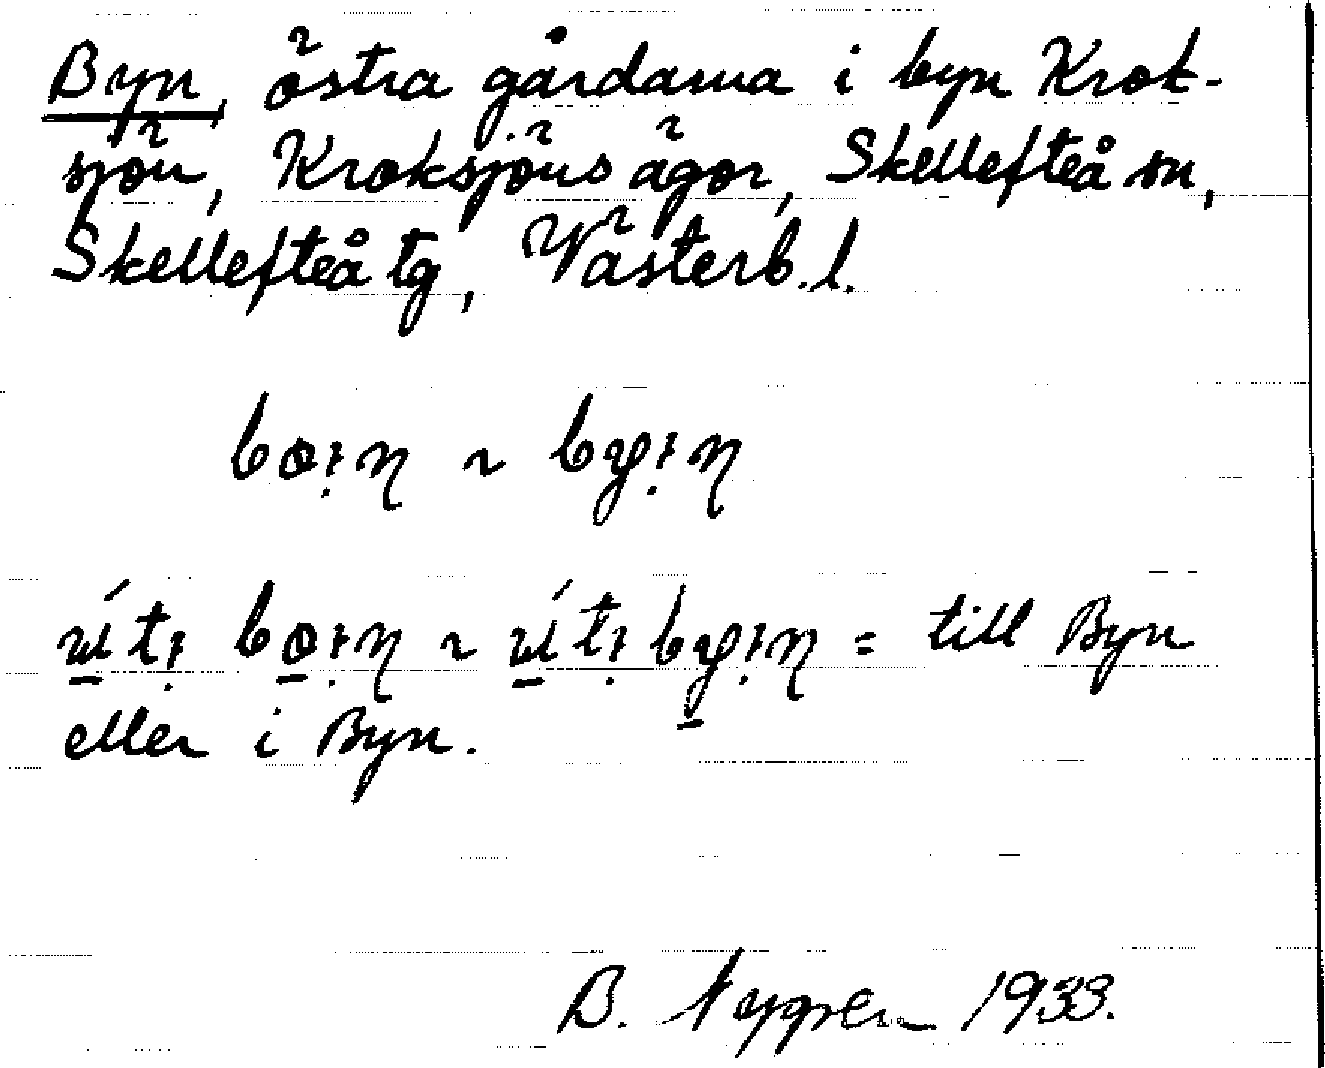 Byn, östra gårdarna i byn Krok-
sjön, Kroksjöns ägor, Skellefteå sn,
Skellefteå tg, Västerb. l.
till Byn
eller i Byn.
B. Nygren 1933.